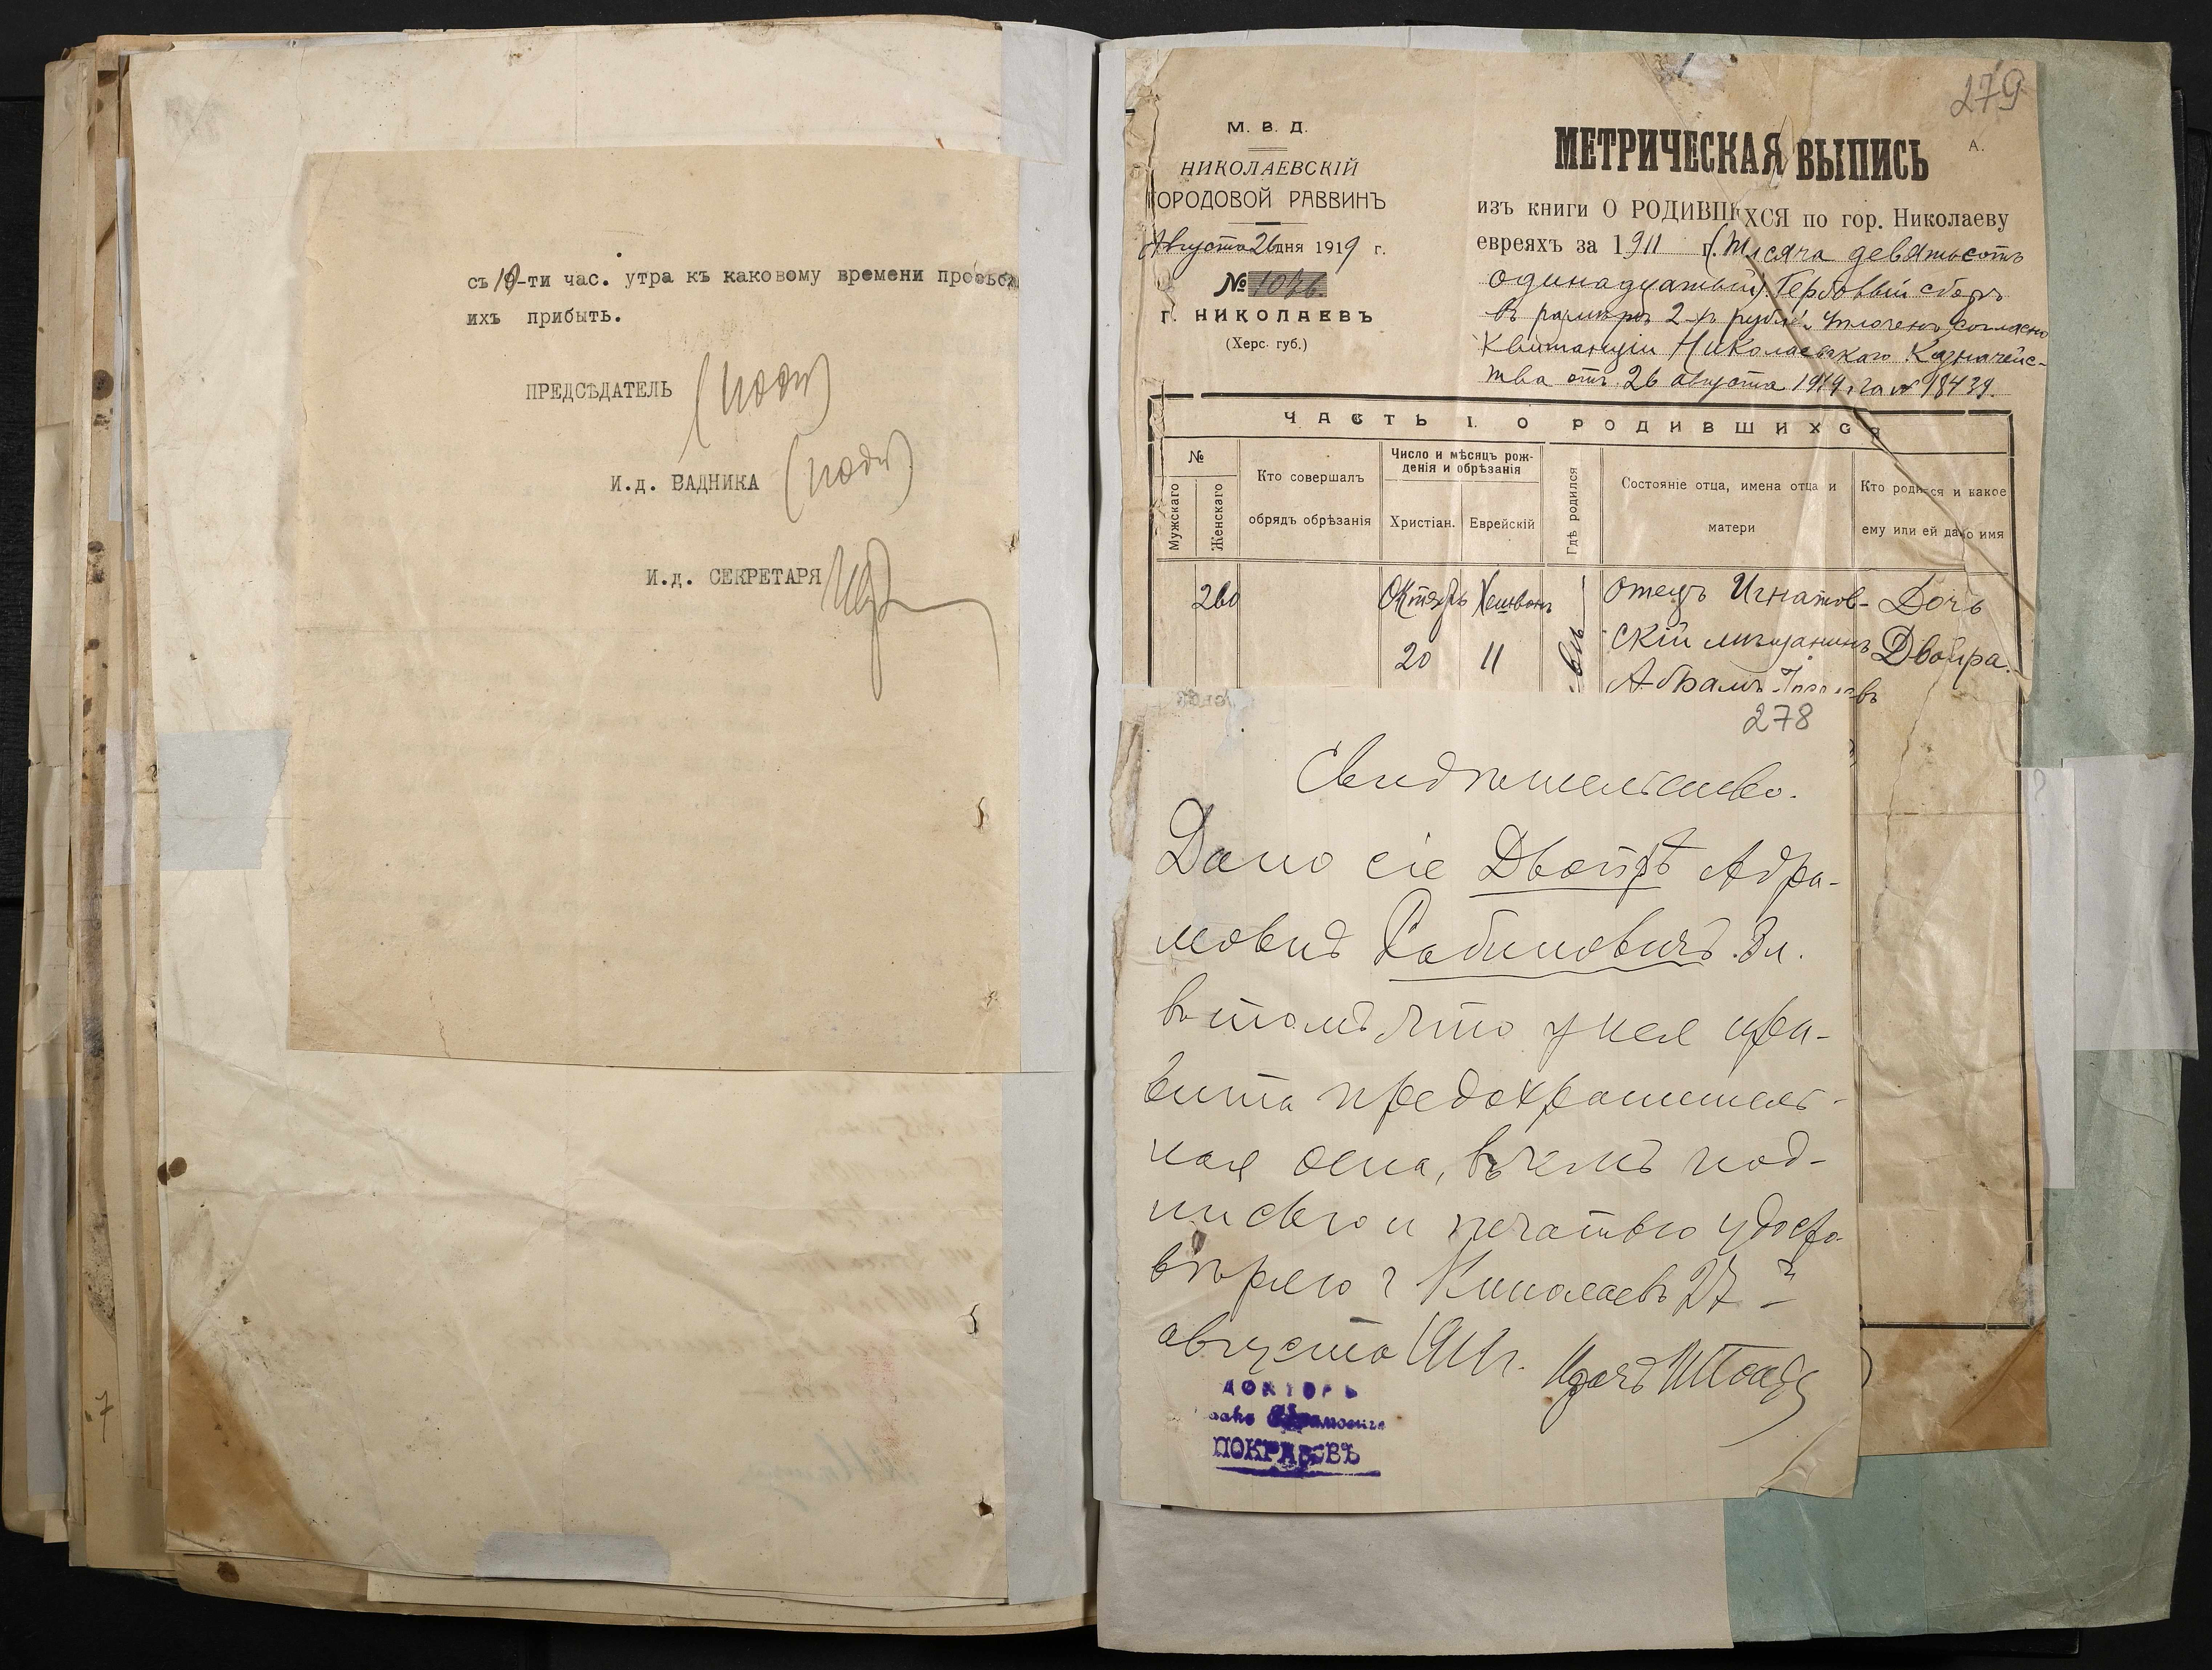 съ 10-ти час. утра къ каковому времени просьба
ихъ прибыть.
ПРЕДСѢДАТЕЛЬ (подп)
И.д. ВАДНИКА (подп)
И.д. СЕКРЕТАРЯ
279
М. В. Д.
НИКОЛАЕВСКІЙ
ГОРОДОВОЙ РАВВИНЪ
Августа 26 дня 1919 г.
№ 1046
Г. НИКОЛАЕВЪ
(Херс. губ.)
МЕТРИЧЕСКАЯ ВЫПИСЬ
А.
изъ книги О РОДИВШИХСЯ по гор. Николаеву
евреяхъ за 1911 г. (Тысяча девятьсотъ
одинадцатый). Гербовый сборъ
въ размѣрѣ 2-хъ рублей уплоченъ согласно
квитанціи Николаевскаго Казначейс-
тва отъ 26 августа 1919 г за № 18439.
ЧАСТЬ I. О РОДИВШИХСЯ
№
Мужскаго
Женскаго
Кто совершалъ
обрядъ обрѣзанія
Число и мѣсяцъ рож-
денія и обрѣзанія
Христіан.
Еврейскій
Гдѣ родился
Состояніе отца, имена отца и
матери
Кто родился и какое
ему или ей дано имя
260 Октябрь Хешвонъ отецъ Игнатов- Дочь
20 11 скій мѣщанинъ Двойра.
Абрамъ
278
Свидѣтельство.
Дано сіе Двойрѣ Абра-
мовнѣ Рабиновичъ 8 л.
въ томъ что у нея при-
вита предохранитель-
ная оспа, въ чемъ под-
писью и печатью удосто-
вѣряю г Николаевъ 27
августа 191 г.
Врачъ
ДОКТОРЪ
ПОКРАСОВЪ